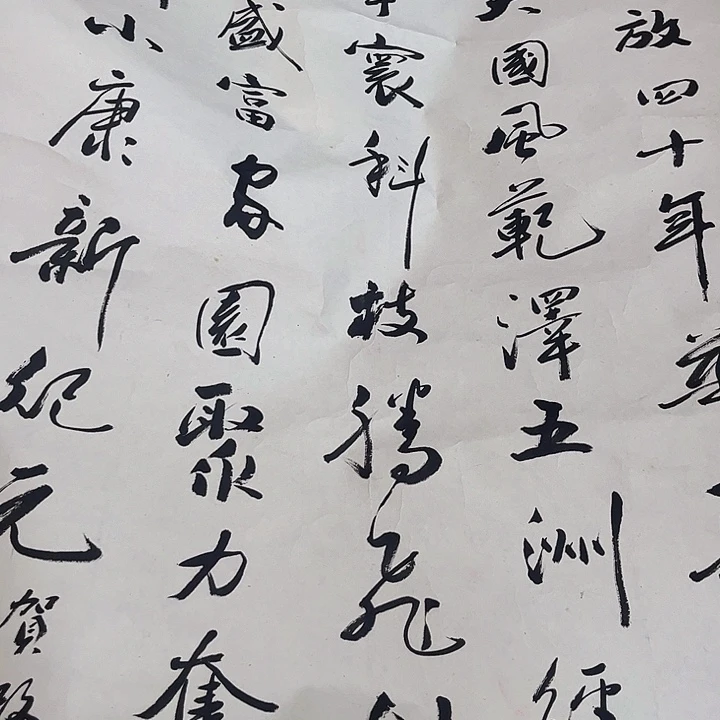 放四十年
國風範澤五洲經
寰科技騰飛
盛富家園聚力奮
小康新紀元賀改